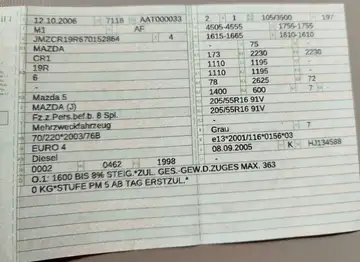 12.10.2006 7118 AAT000033
M1 AF
JMZCR19R670152864 4
MAZDA
CR1
19R
6
-
Mazda 5
MAZDA (J)
Fz.z.Pers.bef.b. 8 Spl.
Mehrzweckfahrzeug
70/220*2003/76B
EURO 4
Diesel
0002 0462 1998
O.1: 1600 BIS 8% STEIG.*ZUL. GES.-GEW.D.ZUGES MAX. 363
0 KG*STUFE PM 5 AB TAG ERSTZUL.*
2 1 105/3500 197
4505-4555 1755-1755
1615-1665 1610-1610
- 75 -
173 2230 2230
1110 1195 -
1110 1195 -
78 2625 72
1400 600 7 -
205/55R16 91V
205/55R16 91V
-
Grau 7
e13*2001/116*0156*03
08.09.2005 K HJ134588